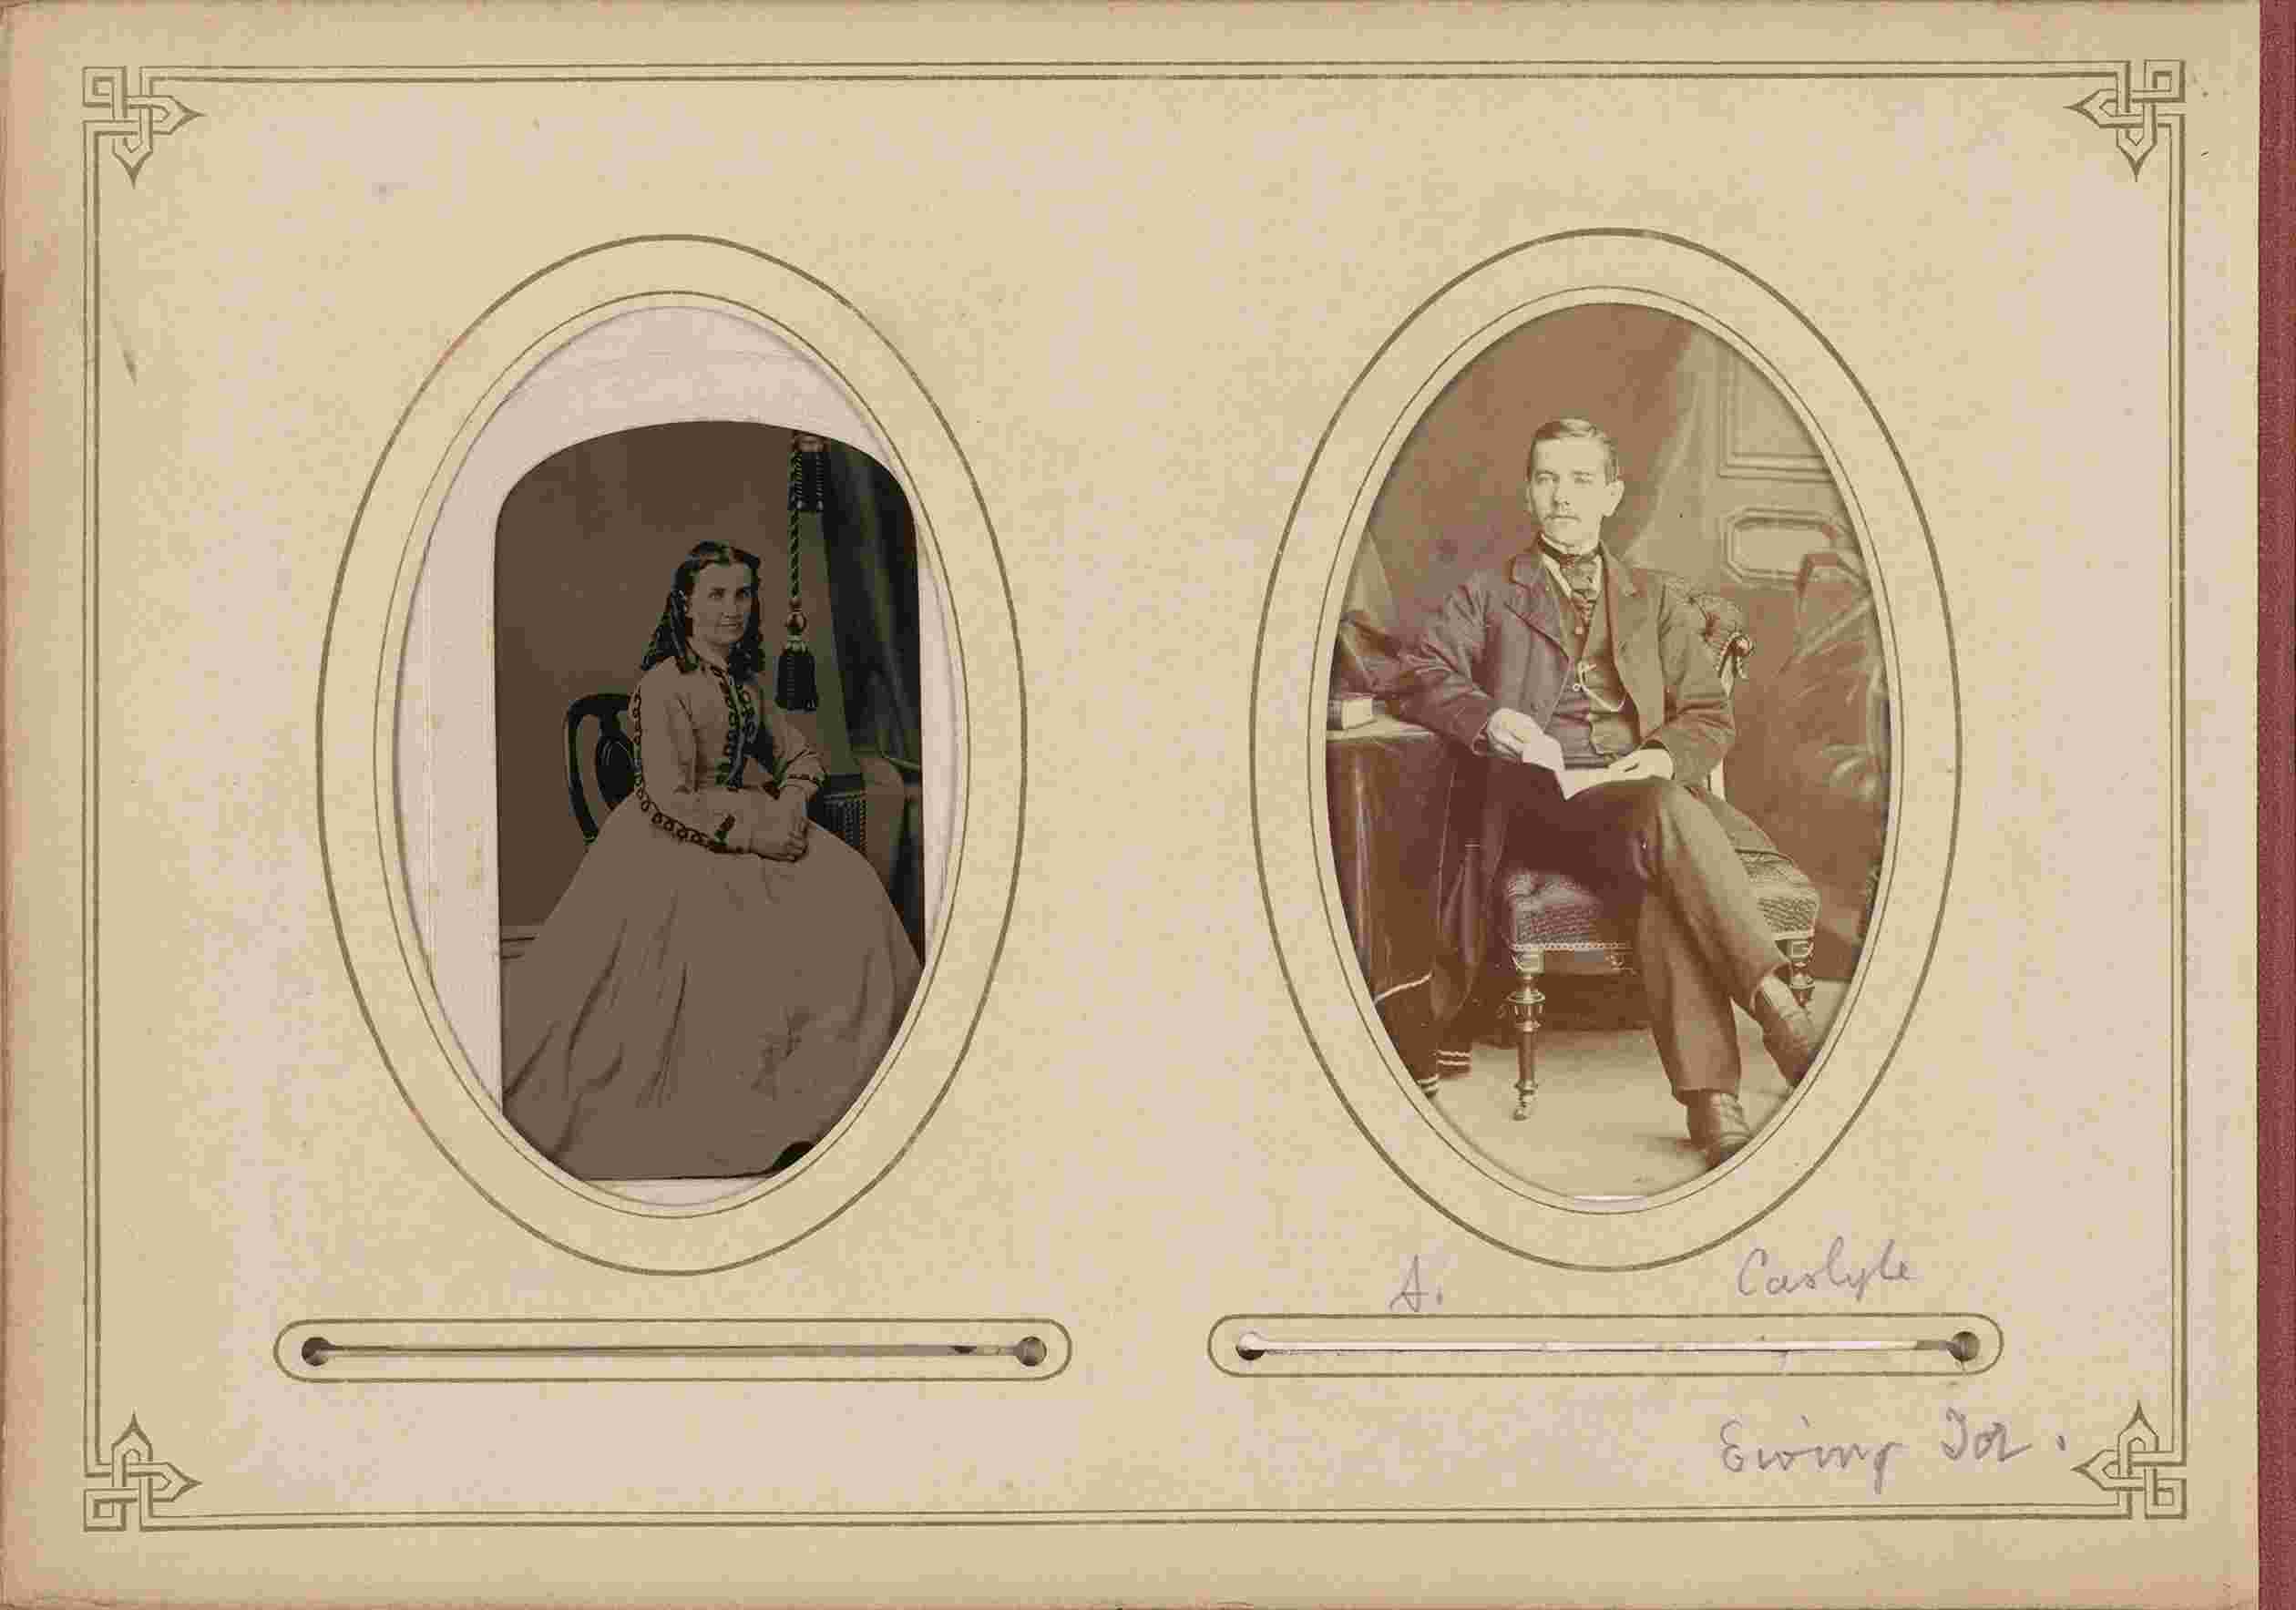 A. Carlyle
Ewing Tor.